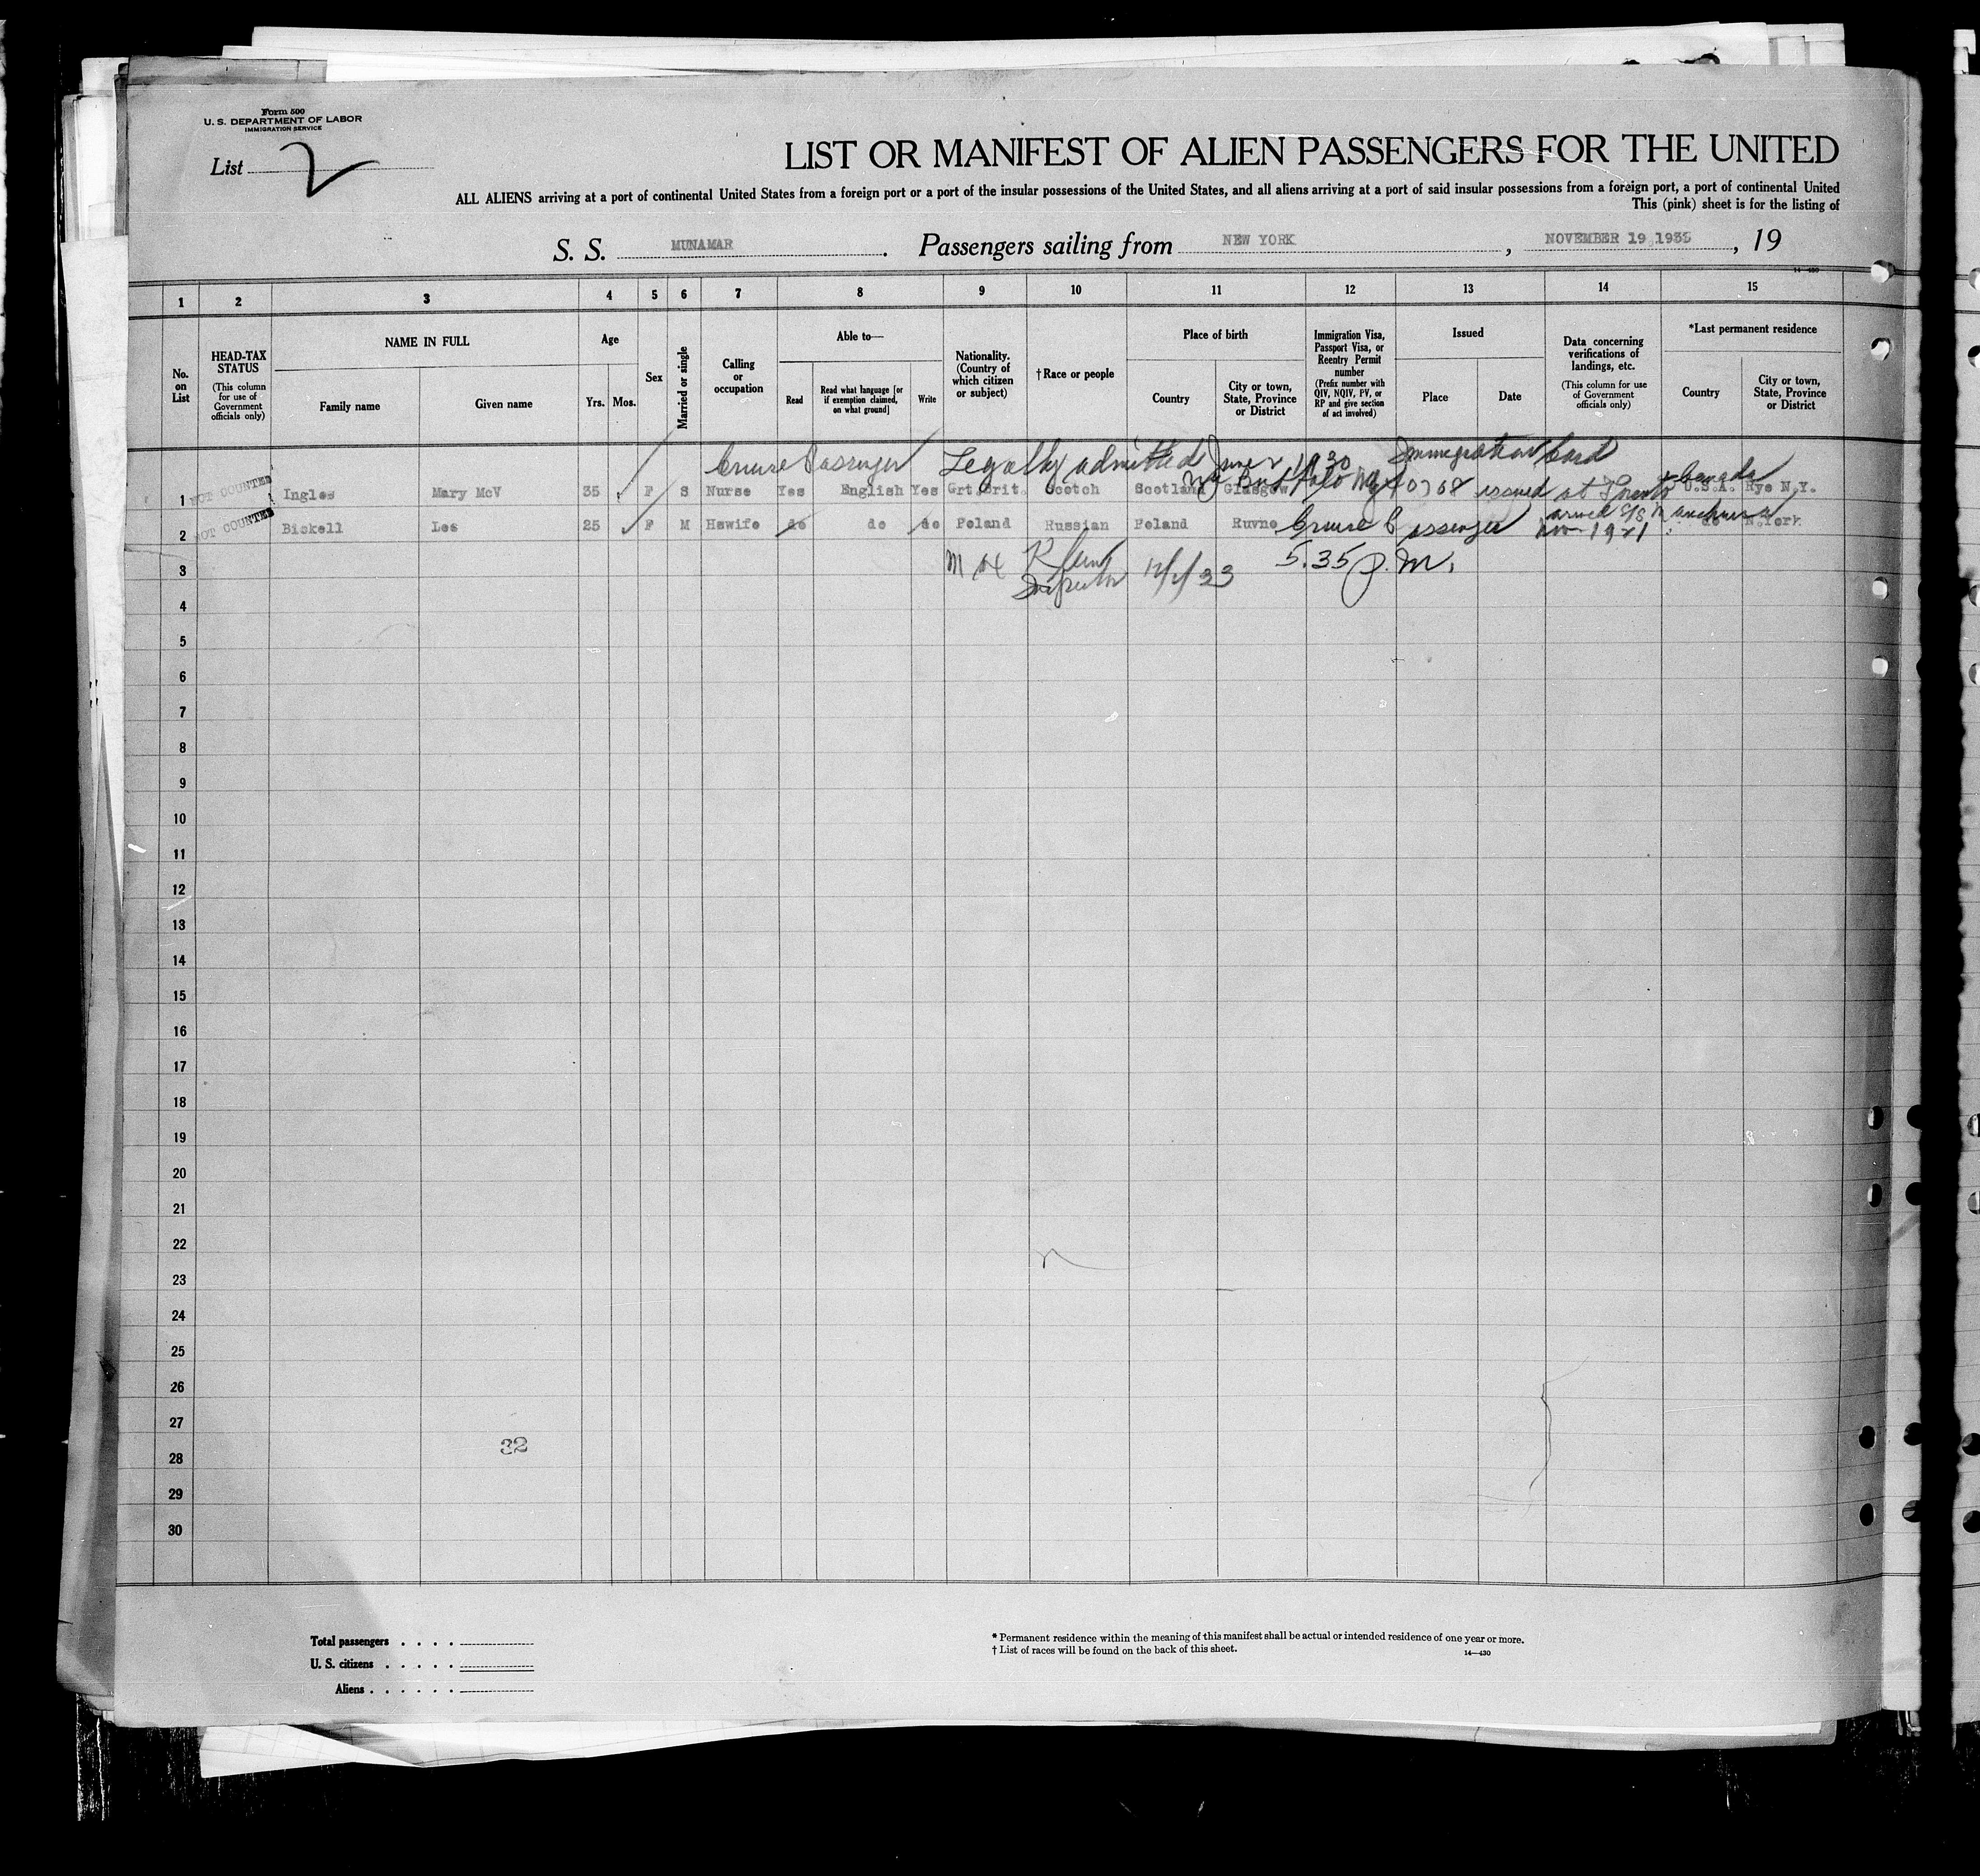 Form 500
U. S. DEPARTMENT OF LABOR
IMMIGRATION SERVICE
List 2
LIST OR MANIFEST OF ALIEN PASSENGERS FOR THE UNITED
ALL ALIENS arriving at a port of continental United States from a foreign port or a port of the insular possessions of the United States, and all aliens arriving at a port of said insular possessions from a foreign port, a port of continental United
This (pink) sheet is for the listing of
S. S. MUNAMAR. Passengers sailing from NEW YORK, NOVEMBER 19 1933, 19
14—430
1 2 3 4 5 6 7 8 9 10 11 12 13 14 15
No. on List
HEAD-TAX STATUS (This column for use of Government officials only)
NAME IN FULL
Family name Given name
Age
Yrs. Mos.
Sex
Married or single
Calling or occupation
Able to—
Read Read what language [or if exemption claimed, on what ground] Write
Nationality. (Country of which citizen or subject)
†Race or people
Place of birth
Country City or town, State, Province or District
Immigration Visa, Passport Visa, or Reentry Permit number (Prefix number with QIV, NQIV, PV, or RP and give section of act involved)
Issued
Place Date
Data concerning verifications of landings, etc. (This column for use of Government officials only)
*Last permanent residence
Country City or town, State, Province or District
Cruise Passenger Legally admitted June 2 1930 Immigration Card
Buffalo N.Y. issued at Toronto Canada
1 NOT COUNTED Ingles Mary McV 35 F S Nurse Yes English Yes Grt.Brit. Scotch Scotland Glasgow U.S.A. Rye N.Y.
2 NOT COUNTED Bickell Les 25 F M Hswife do do do Poland Russian Poland Ruvno Cruise Passenger arrived S/S Nov 1921 do N.York
3 Inspector 5.35 P.M.
4
5
6
7
8
9
10
11
12
13
14
15
16
17
18
19
20
21
22
23
24
25
26
27
32
28
29
30
Total passengers
U. S. citizens
Aliens
* Permanent residence within the meaning of this manifest shall be actual or intended residence of one year or more.
† List of races will be found on the back of this sheet.
14—430